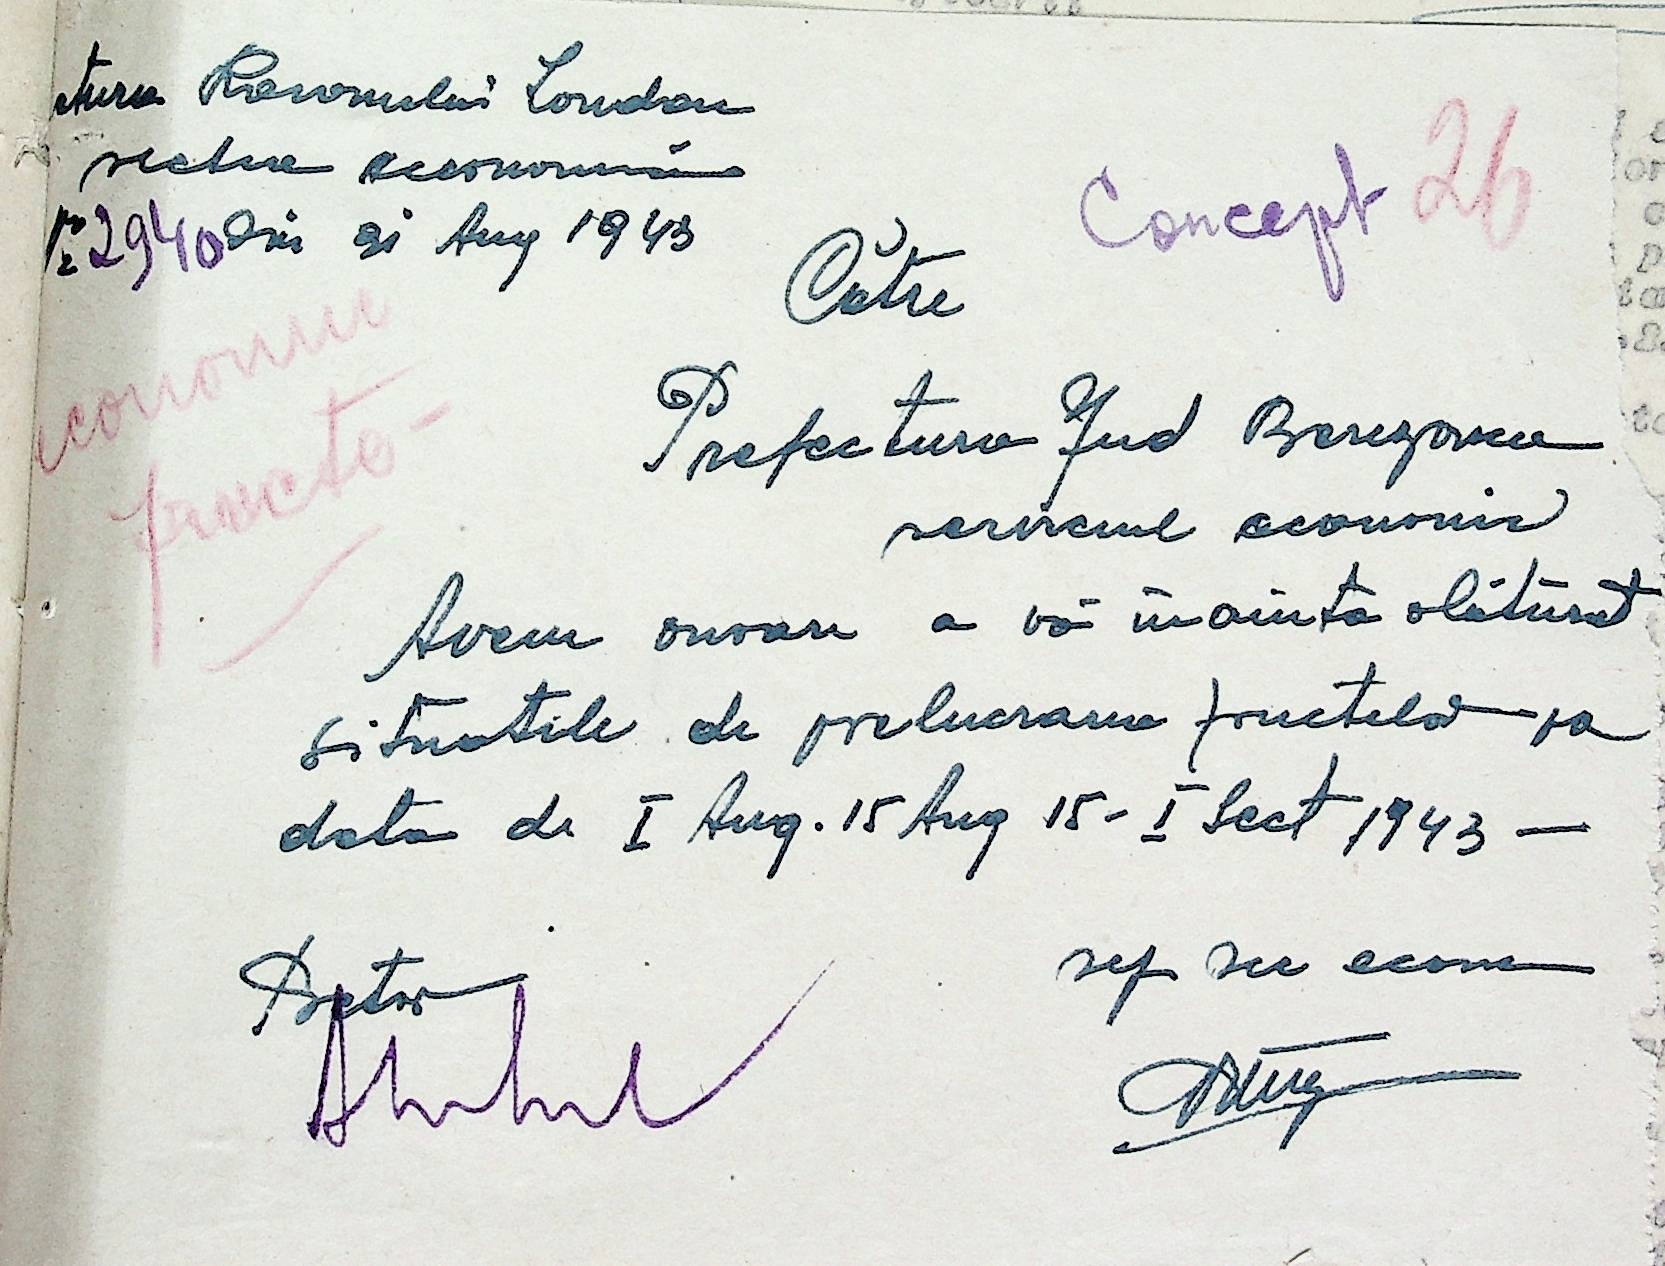 tura Raionului Landau
sectia economică
Nr 2940 din 31 Aug 1943
Concept 26
Către
economic
fructe
Prefectura Jud Berezovca
serviciul economic
Avem onoare a vă inainta alăturat
situatile de prelucrarea fructelor pe
data de I Aug. 15 Aug 15 - I Sect 1943 —
Pretor
sef sec econom